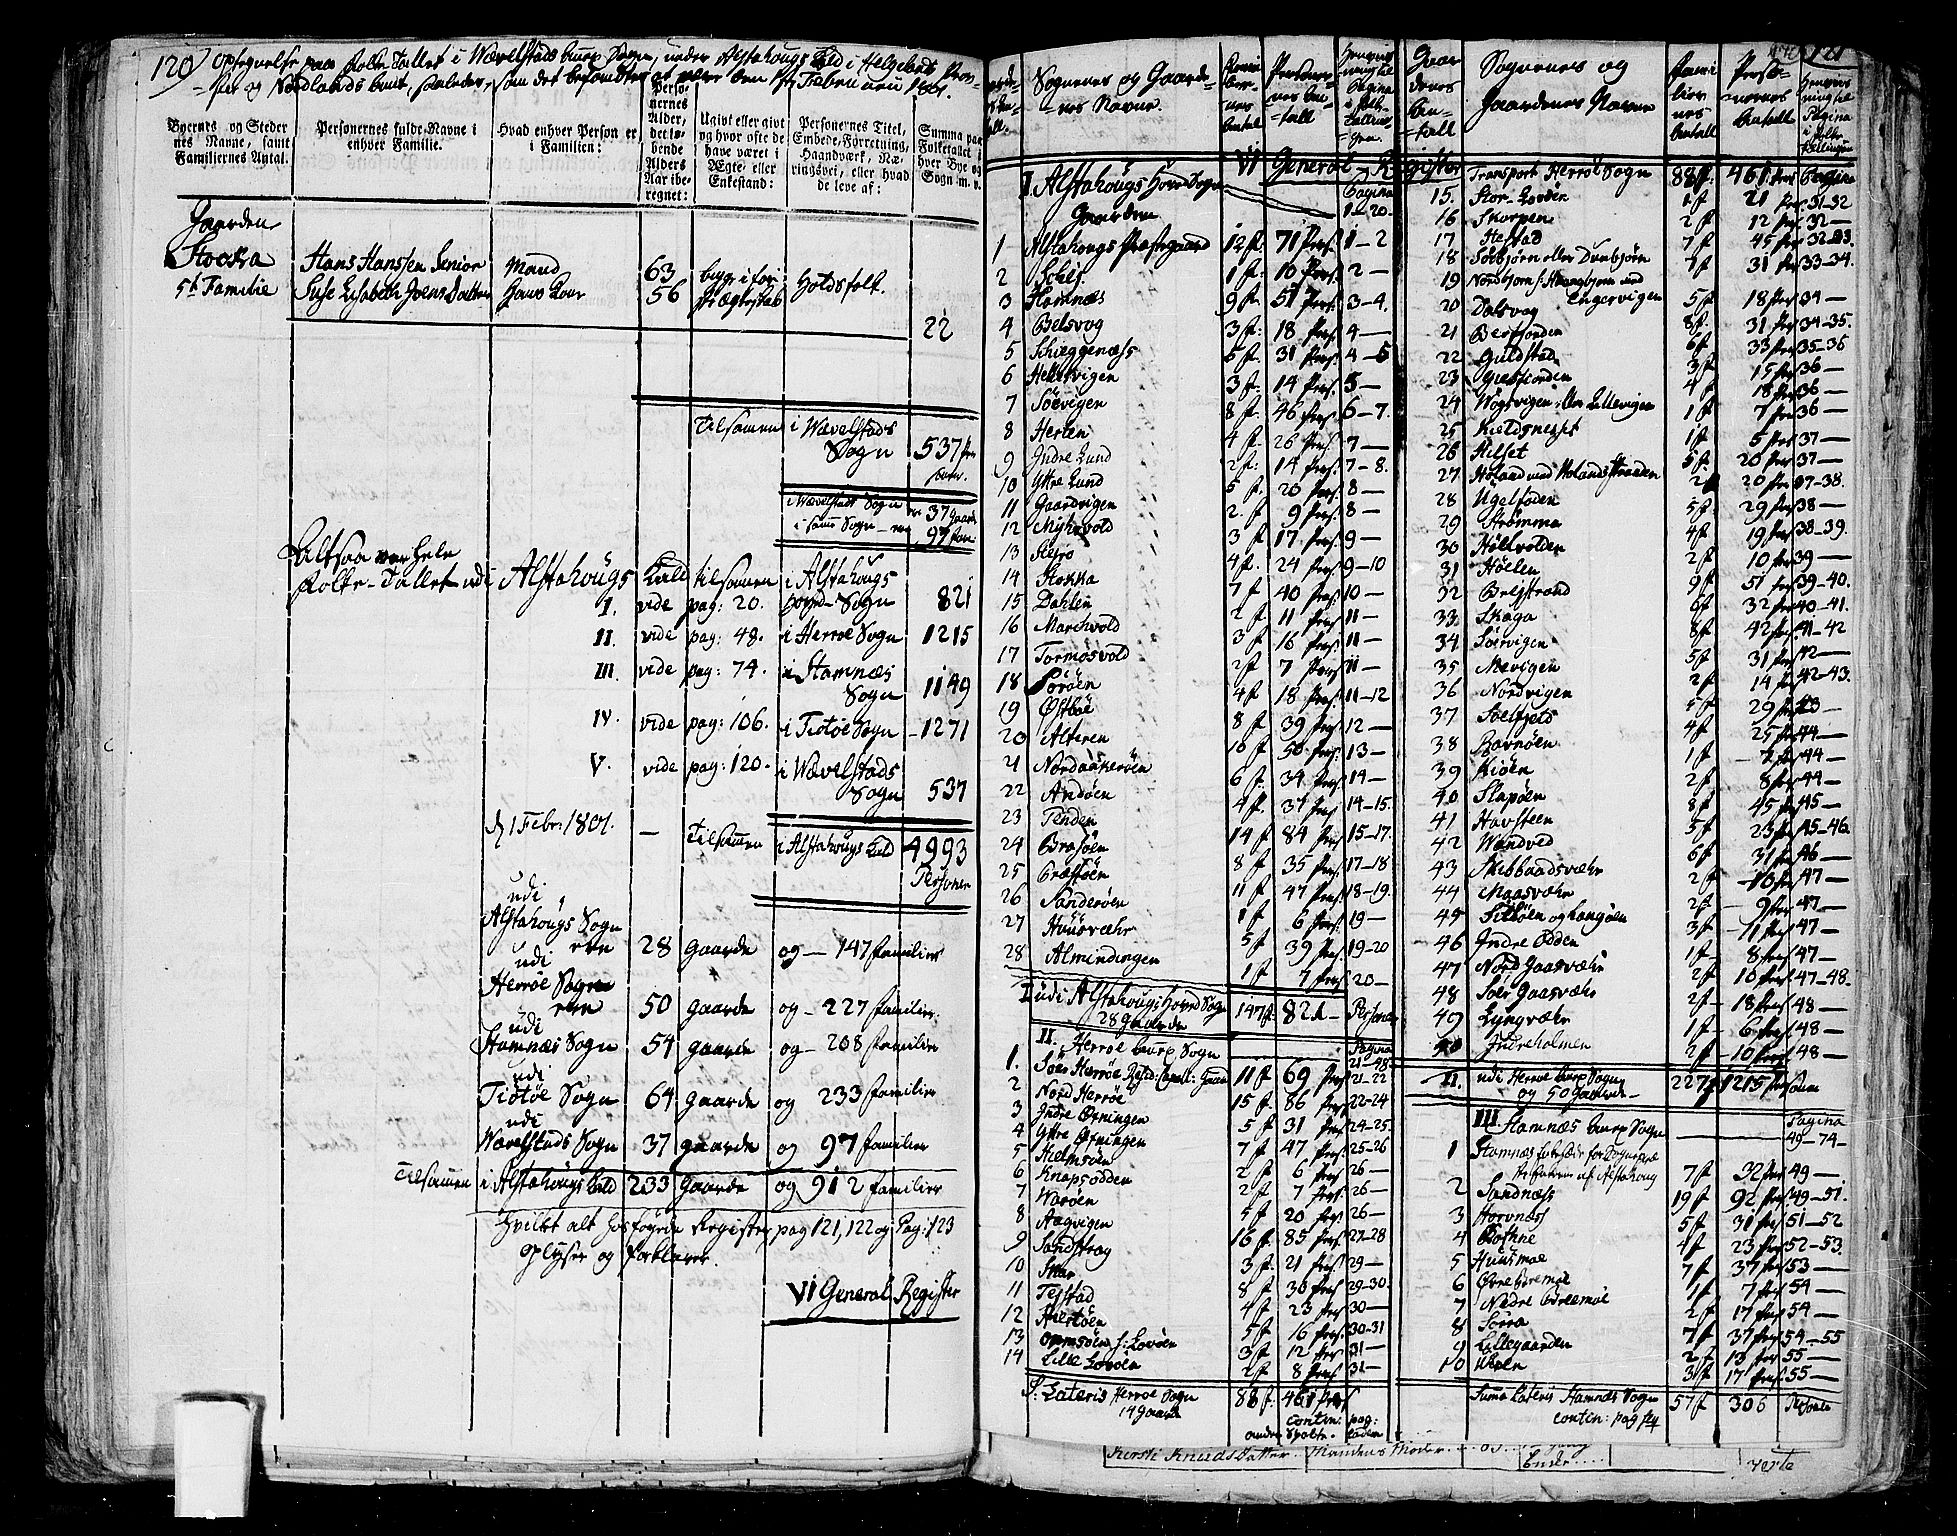 120
Optegnelse paa Folke Tallet i Wævelstads Anex Sogn, under Alstahougs Kald i Helgelands Provstie og Nordlands Amt, saaledes, som det befandtes at være den 1ste Februarii 1801.
Byernes og Steder
nes Navne, samt
Familiernes Antal.
Personernes fulde Navne i
enhver Familie.
Hvad enhver Person er
i Familien:
Personernes
Alder,
det løbende
Alders
Aar iberegnet:
Ugivt eller givt
og hvor ofte de
have været i
Ægte- eller
Enkestand:
Personernes Titel,
Embede, Forretning,
Haandværk, Næringsvei,
eller hvad
de leve af:
Summa paa
Folketallet i
hver Bye og
Sogn m. v.
Gaarden
Stocka
5te Familie
Hans Hanssen Senior Mand 63 begge i 1ste
Huus Koer 56 Ægteskab Holdsfolk.
22
Tilsamen i Wævelstads
Sogn 537 Per
soner.
i Wævelstads Sogn er 37 Gaarde
i samme Sogn er 97 Fam.
Altsaa er hele
Folke-Tallet udi Alstahougs Kald tilsamen i Alstahougs
I. vide pag: 20. Hoved-Sogn 821
II. vide pag: 48. i Herrøe Sogn 1215
III. vide pag: 74. i Stamnæs
Sogn 1149
IV. vide pag: 106. i Tiøtøe Sogn 1271
V. vide pag: 120. i Wævelstads
Sogn 537
d. 1 Febr: 1801. Tilsamen i Alstahougs Kald 4993
Personer
udi
Alstahougs Sogn
ere 28 gaarde og 147 familier
udi
Herrøe Sogn
ere 50 gaarde og 227 familier
udi
Stamnæs Sogn 54 gaarde og 208 familier
udi
Tiøtøe Sogn 64 gaarde og 233 familier
udi
Wævelstads Sogn 37 gaarde og 97 familier
Tilsamen i Alstahougs Kald 233 gaarde og 912 familier
Hvilket alt hosføyede Register pag 121, 122 og Pag: 123
oplyser og forklarer.
VI General Register
121
Sognenes og Gaarde-
nes Navne.
Personer-
nes An-
tall
Henviis-
ning til
Pagina
i Folke
Tællin-
gen
VI General-Register
I. Alstahougs Hoved Sogn
Gaardene
Pagina
1-20.
1 Alstahougs Præstegaard 12 f. 71 Pers. 1-2
2 Belsf. 1 f. 10 Pers. 2-
3 Hamnæs 9 f. 51 Pers. 3-4.
4 Belsvog 3 f. 18 Pers. 4-
5 Schieggenæss 5 f. 31 Pers. 4-5
6 Hellesvigen 3 f. 14 Pers. 5-
7 Søevigen 8 f. 46 Pers. 6-7.
8 Herlen 4 f. 26 Pers. 7-
9 Indre Lund 2 f. 14 Pers. 7-8.
10 Yttre Lund 5 f. 20 Pers. 8-
11 Gaardvigen 2 f. 9 Pers. 8-
12 Myhrvold 3 f. 17 Pers. 9-
13 4 f. 24 Pers. 9-10
14 Stokka 7 f 40 Pers. 10-
15 Dahlen 2 f 11 Pers. 11-
16 Marchvold 3 f 16 Pers. 11-
17 Tormosvold 2 f 7 Pers 11-
18 Sørøen 4 f 18 Pers. 11-12
19 Østbøe 8 f 39 Pers. 12-
20 Alteren 10 f 50 Pers. 13-
21 Nordaakerøen 6 f 34 Pers. 14-
22 Andøen 4 f 37 Pers 14-15.
23 Tenden 14 f 84 Pers. 15-17.
24 Brasøen 8 f 35 Pers. 17-18
25 Græsøen 11 f 47 Pers. 18-19.
26 Sanderøen 1 f 6 Pers. 19-
27 Huusvæhr 5 f 39 Pers. 19-20
28 Almindingen 1 f 7 Pers 20-
I. udi Alstahougs Hoved Sogn 147 f 821 Personer
28 Gaarde
II. Herrøe Anex Sogn Pagina
21-48.
1. Søer Herrøe Resid: Capell: Gaard 11 f 69 Pers 21-22
2 Nord Herrøe 15 f. 86 Pers 22-24
3 Indre Øvningen 5 f 31 Pers 24-25.
4 Yttre Øvningen 7 f 47 Pers. 25-26
5 Hielmsøen 2 f 6 Pers. 26-
6 Knapsodden 2 f 7 Pers. 26-
7 Warøen 5 f 20 Pers. 26-
8 Aagvigen 16 f 85 Pers. 27-28
9 Sandstrag 3 f. 21 Pers. 29-
10 Skar 8 f 30 Pers. 29-30.
11 Testad 4 f 23 Pers. 30-
12 Hiertøen 5 f 16 Pers. 30-31
13 Ormsøen f: Lovøen 3 f 12 Pers 31-
14 Lille Lovøen 2 f 8 Pers. 31-
S. Lateris Herrøe Sogn 88 f. 461 Pers
14 Gaarde contin: pag:
andre Spalte.
Gaar
denes
An-
tall
Sognenes og
Gaardenes Navne
Fami
lier
nes
Antall
Perso-
nernes
Antall
Henviis
ning til
Pagina
i Folke
Tællingen
Transport Herrøe Sogn 88 f: 461 Pers Pagina
15. Stor Lovøen 1 f 21 Pers 31-32
16 Skorpen 2 f 12 Per 32-
17 Hestad 7 f 45 Per 32-33.
18 Sørbjørn eller Dunbjørn 7 f 31 Pers 33-34.
19 Nordbjørn med
Engervigen 5 f 18 Pers 34-
20 Dalsvog 8 f. 31 Pers 34-35.
21 Berfjorden 6 f 33 Pers 35-36
22 Guldstad 3 f 15 Pers 36-
23 4 f 18 Pers 36-
24 Wogsvigen Lillevigen 1 f 7 Pers 36-
25 Kieldsneset 1 f 5 Pers 37-
26 Hilset 5 f. 20 Pers 37-
27 Høland med Holandstranden 20 Pers 37-38.
28 Ugelfoden 5 f 29 Pers 38-
29 Strømma 4 f 19 Pers 38-39.
30 Høltvolden 2 f 10 Pers 39-
31 Høelen 9 f 51 Pers 39-40.
32 Breistrand 6 f 32 Pers 40-41.
33 Skaga 8 f 42 Pers 41-42
34 Søervigen 5 f 31 Pers 42-
35 Mevigen 2 f 14 Pers 42-43.
36 Nordvigen 5 f 29 Pers 43-
37 Soelfjeld 4 f 25 Pers 44-
38 Ravnøen 1 f 2 Pers 44-
39 Kiøen 2 f 8 Pers 44-
40 Slapøen 8 f 45 Pers 45-
41 Havsteen 5 f 23 Pers 45-46.
42 Wandved 6 f 31 Pers 46-
43 Skibbaadsvæhr 2 f 10 Pers 47-
44 Maasvæhr 2 f 9 Pers 47-
45 og Langøen 3 f 11 Pers 47-
46 Indre Odden 1 f 8 Pers 47-
47 Nord Gaasvæhr 2 f 10 Pers 47-48.
48 Søer Gaasvæhr 2 f 18 Pers 48-
49 Lyngvæhr 1 f 6 Pers 48-
50 Indreholmen 2 f 10 Pers 48-
II. udi Herrøe Anex Sogn 227 f 1215 Per sonen
og 50 Gaarde
III. Stamnæs Anex Sogn Pagina
49-74-
1 Stamnæs for Sognepræ
af Alstahoug 7 f 32 Pers 49-
2 Sandnæss 19 f 92 Pers 49-51.
3 Horvnæss 5 f 31 Pers 51-52
4 Bothne 4 f 23 Pers 52-53.
5 Huusmoe 7 f 37 Pers 53-
6 Øvre Aremoe 1 f 7 Pers 54-
7 Nedre Aremoe 2 f 17 Pers 54-
8 Sørra 7 f 37 Pers 54-55
9 Lillegaarden 2 f 13 Pers 55-
10 3 f 17 Pers. 55-
Summa Lateris Stamnæs Sogn 57 f 306 Personer
contin: pag
verte
Kirsti Knudsdatter Mandens Moder
Enke